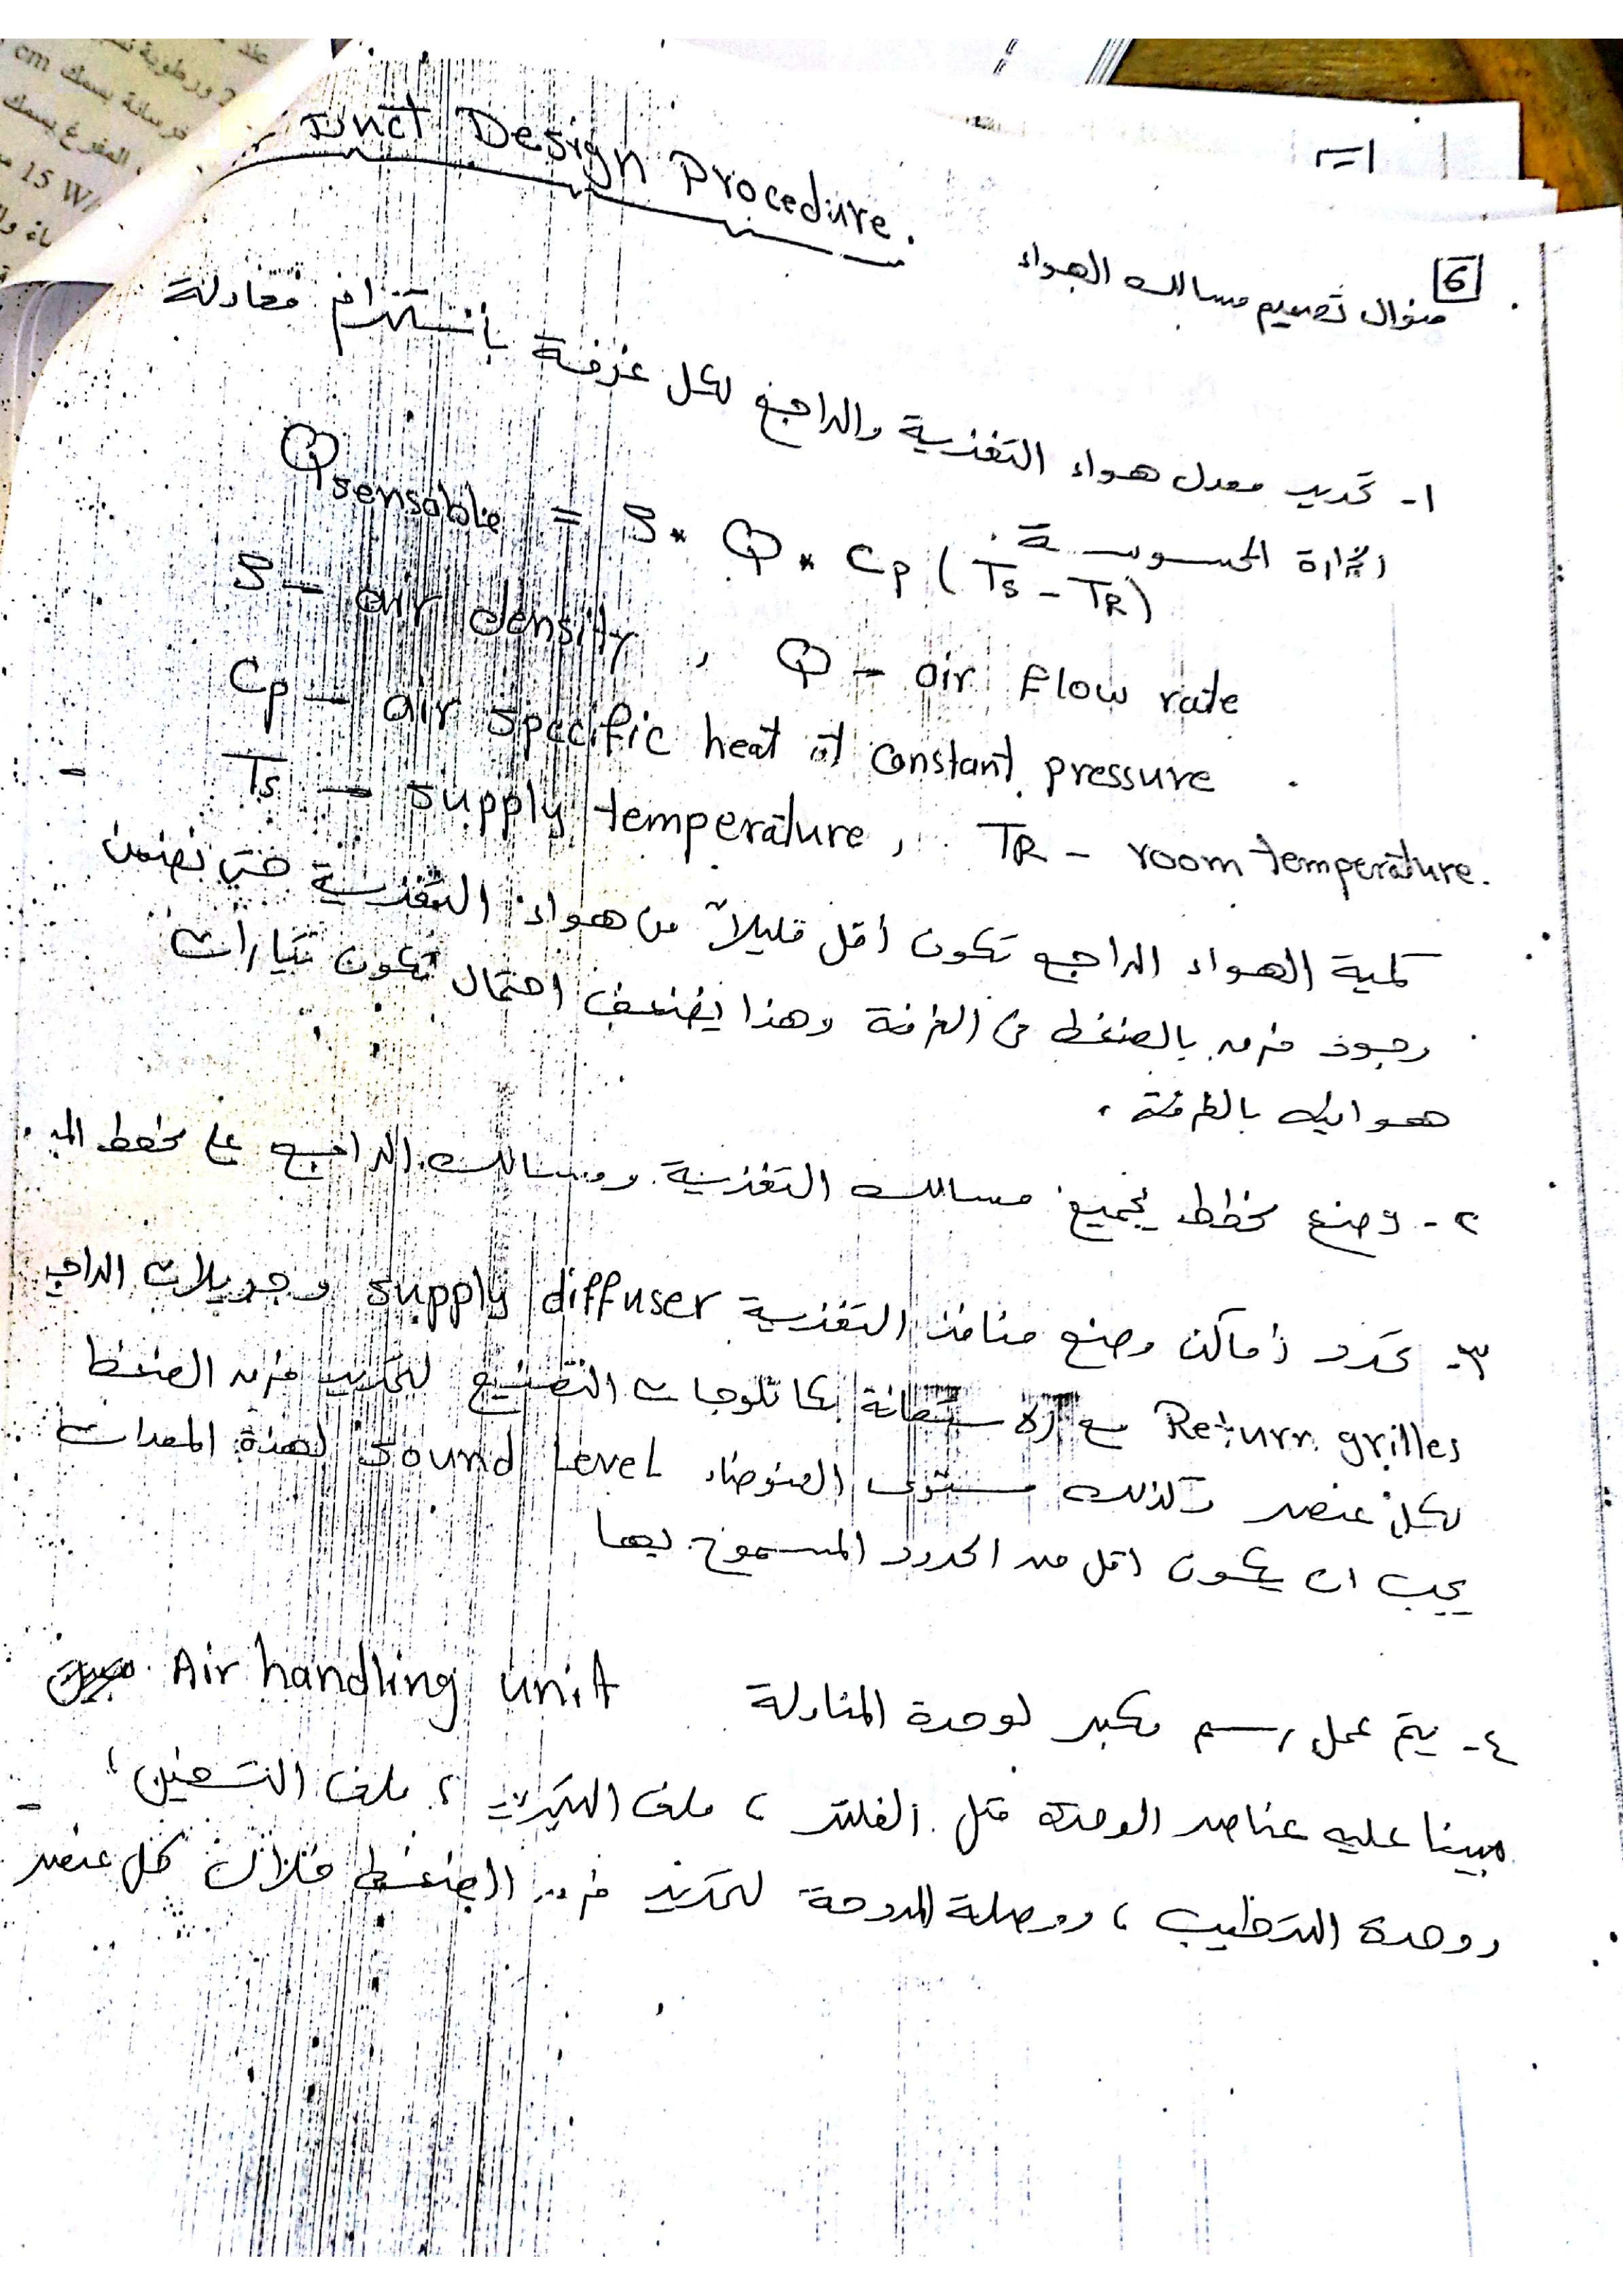 Duct Design Procedure.
6
منوال تصميم مسالك الهواء
١- تحديد معدل هواء التغذية والراجع لكل غرفة بأستخدام معادلة
الحرارة المحسوسة
Qsensable = ρ * Q * Cp (Ts - TR)
ρ - air density , Q - air Flow rate
Cp - air specific heat at constant pressure
Ts - supply temperature, TR - room temperature.
كمية الهواء الراجع تكون أقل قليلاً من هواء التغذية حتى نضمن
وجود فرق بالضغط في الغرفة وهذا يضعف احتمال تكون تيارات
هوائية بالغرفة.
٢- وضع مخطط لجميع مسالك التغذية ومسالك الراجع على مخطط
٣- تحدد أماكن وضع منافذ التغذية supply diffuser وجريلات الراجع
Return grilles مع الاستعانة بكاتلوجات التصنيع لتحديد فرق الضغط
لكل عنصر وكذلك مستوى الضوضاء Sound Level لهذه المعدات
يجب ان يكون اقل من الحدود المسموح بها
٤- يتم عمل رسم مكبر لوحدة المناولة Air handling unit
مبينا عليه عناصر الوحدة مثل الفلتر ، ملف التبريد ، ملف التسخين ،
ووحدة الترطيب ، ووصلة المروحة لتحديد فرق الضغط خلال كل عنصر
cm
فرسانة بسمك
المفرغ بسمك
15 W/